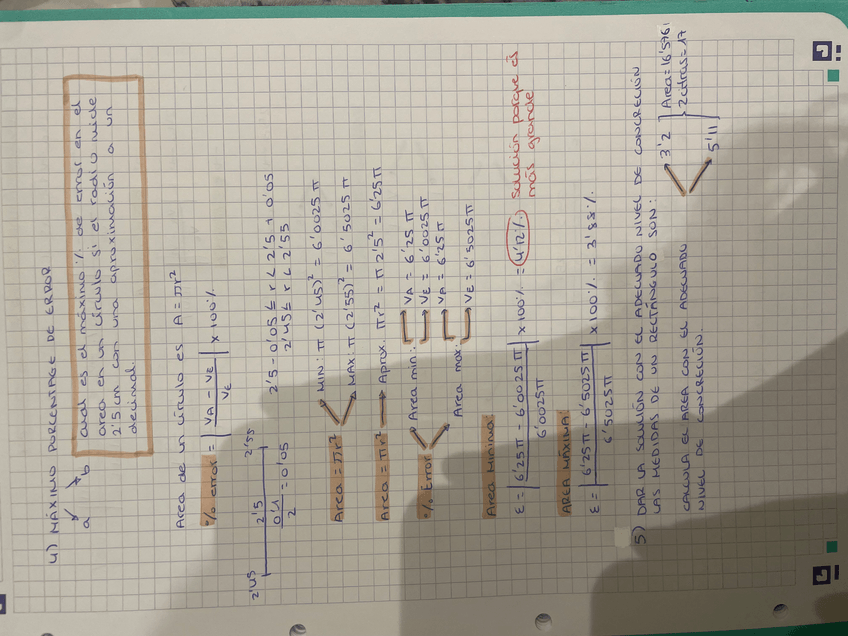 4) MÁXIMO PORCENTAGE DE ERROR
a b
cual es el máximo % de error en el
area en un círculo si el radio mide
2'5 cm con una aproximación a un
decimal.
Area de un círculo es A = πr²
% error = | VA - VE / VE | x 100%
2'45 2'5 2'55
0'1 / 2 = 0'05
2'5 - 0'05 ≤ r < 2'5 + 0'05
2'45 ≤ r < 2'55
Area = πr² MIN: π (2'45)² = 6'0025 π
MAX: π (2'55)² = 6'5025 π
Area = πr² Aprox. πr² = π 2'5² = 6'25π
% Error Area min: VA = 6'25 π
VE = 6'0025 π
Area max: VA = 6'25π
VE = 6'5025π
Area MINIMA:
ε = | 6'25π - 6'0025π / 6'0025π | x 100% = 4'12% solución porque es
más grande
AREA MÁXIMA:
ε = | 6'25π - 6'5025π / 6'5025π | x 100% = 3'88%
5) DAR LA SOLUCIÓN CON EL ADECUADO NIVEL DE CONCRECIÓN
LAS MEDIDAS DE UN RECTÁNGULO SON:
CALCULA EL AREA CON EL ADECUADO
NIVEL DE CONCRECIÓN.
3'2 Area = 16'5761
2 cifras = 17
5'11